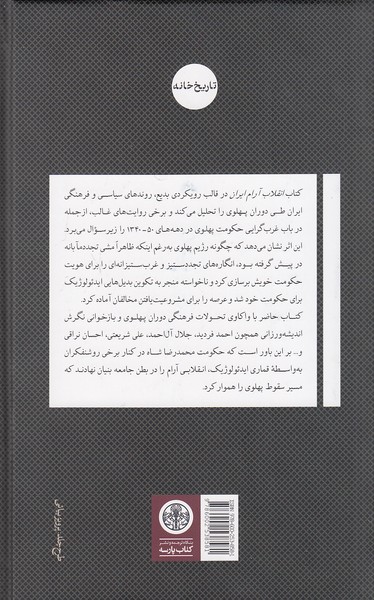 تاریخ‌خانه
کتاب انقلاب آرام ایران در قالب رویکردی بدیع، روندهای سیاسی و فرهنگی
ایران طی دوران پهلوی را تحلیل می‌کند و برخی روایت‌های غالب، ازجمله
در باب غرب‌گرایی حکومت پهلوی در دهه‌های ۵۰-۱۳۴۰ را زیر سؤال می‌برد.
این اثر نشان می‌دهد که چگونه رژیم پهلوی به‌رغم اینکه ظاهراً مشی تجددمآبانه
در پیش گرفته بود، انگاره‌های تجددستیز و غرب‌ستیزانه‌ای را برای هویت
حکومت خویش برسازی کرد و ناخواسته منجر به تکوین بدیل‌هایی ایدئولوژیک
برای حکومت خود شد و عرصه را برای مشروعیت‌یافتن مخالفان آماده کرد.
کتاب حاضر با واکاوی تحولات فرهنگی دوران پهلوی و بازخوانی نگرش
اندیشه‌ورزانی همچون احمد فردید، جلال آل‌احمد، علی شریعتی، احسان نراقی
و... بر این باور است که حکومت محمدرضا شاه در کنار برخی روشنفکران
به‌واسطهٔ قماری ایدئولوژیک، انقلابی آرام را در بطن جامعه بنیان نهادند که
مسیر سقوط پهلوی را هموار کرد.
طرح جلد: پرویز بیانی
بنگاه ترجمه و نشر
کتاب پارسه